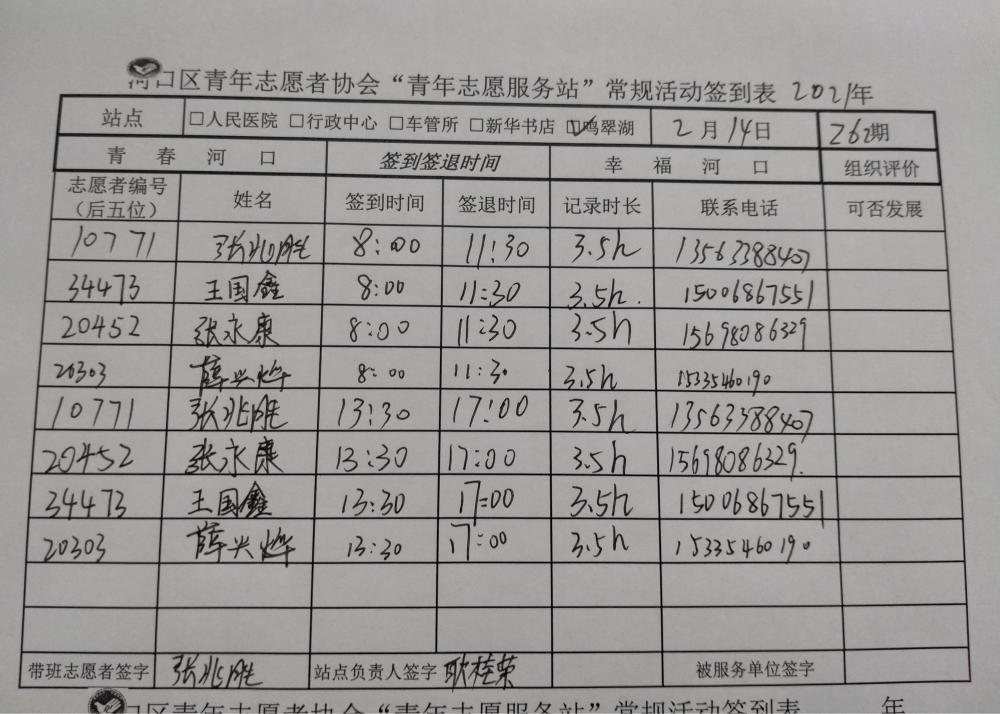 河口区青年志愿者协会“青年志愿服务站”常规活动签到表 2021年
站点 □人民医院 □行政中心 □车管所 □新华书店 ☑鸣翠湖 2月14日 262期
青春河口 签到签退时间 幸福河口 组织评价
志愿者编号（后五位） 姓名 签到时间 签退时间 记录时长 联系电话 可否发展
10771 张兆胜 8:00 11:30 3.5h 13563388407
34473 王国鑫 8:00 11:30 3.5h. 15006867551
20452 张永康 8:00 11:30 3.5h 15698086329
20303 薛兴烨 8:00 11:30 3.5h 15335460190
10771 张兆胜 13:30 17:00 3.5h 13563388407
20452 张永康 13:30 17:00 3.5h 15698086329.
34473 王国鑫 13:30 17:00 3.5h 15006867551
20303 薛兴烨 13:30 17:00 3.5h 15335460190
带班志愿者签字 张兆胜 站点负责人签字 耿桂荣 被服务单位签字
口区青年志愿者协会“青年志愿服务站”常规活动签到表 年